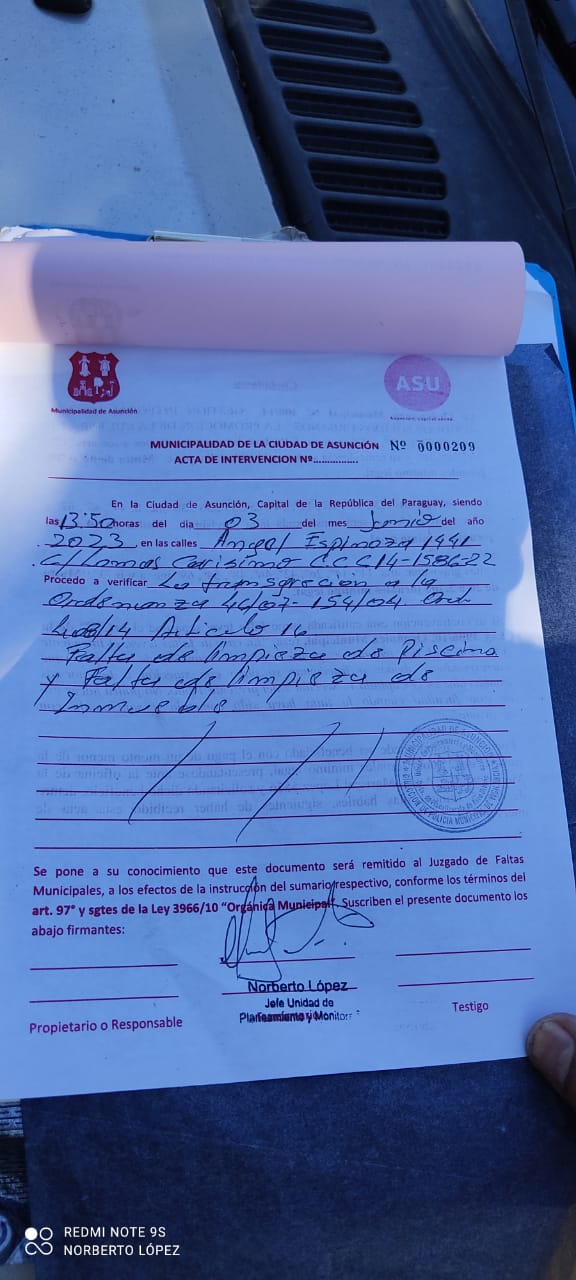 Municipalidad de Asunción
ASU
MUNICIPALIDAD DE LA CIUDAD DE ASUNCIÓN Nº 0000209
ACTA DE INTERVENCION Nº..................
En la Ciudad de Asunción, Capital de la República del Paraguay, siendo
las 13:50 horas del dia 03 del mes Junio del año
2023 en las calles Angel Espinoza 1441
C/ Lomas Carisimo C.C.C 14-1586-22
Procedo a verificar La transgrecion a la
Ordenanza 46/07-154/04 Ord
408/14 Articulo 16
Falta de limpieza de Piscina
y Falta de limpieza de
Inmueble
Se pone a su conocimiento que este documento será remitido al Juzgado de Faltas
Municipales, a los efectos de la instrucción del sumario respectivo, conforme los términos del
art. 97° y sgtes de la Ley 3966/10 “Orgánica Municipal”. Suscriben el presente documento los
abajo firmantes:
Norberto López
Jefe Unidad de
Planeamiento y Monitor
Propietario o Responsable
Testigo
REDMI NOTE 9S
NORBERTO LÓPEZ